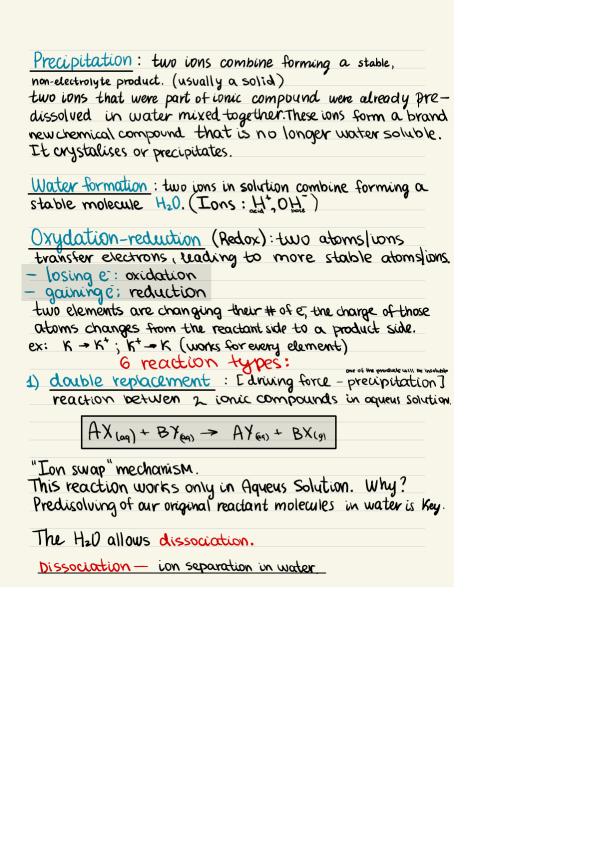 Precipitation : two ions combine forming a stable,
non-electrolyte product. (usually a solid)
two ions that were part of ionic compound were already pre-
dissolved in water mixed together. These ions form a brand
new chemical compound that is no longer water soluble.
It crystalises or precipitates.
Water formation : two ions in solution combine forming a
stable molecule H₂O. (Ions : H⁺, OH⁻)
acid base
Oxydation-reduction (Redox): two atoms/ions
transfer electrons, leading to more stable atoms/ions.
- losing e⁻: oxidation
- gaining e⁻: reduction
two elements are changing their # of e⁻, the charge of those
atoms changes from the reactant side to a product side.
ex: K → K⁺ ; K⁺ → K (works for every element)
6 reaction types:
one of the products will be insoluble
1) double replacement : [driving force - precipitation]
reaction betwen 2 ionic compounds in aqeus solution.
AX(aq) + BY(aq) → AY(aq) + BX(s)
"Ion swap" mechanism.
This reaction works only in Aqeus Solution. Why?
Predisolving of our original reactant molecules in water is key.
The H₂O allows dissociation.
Dissociation — ion separation in water